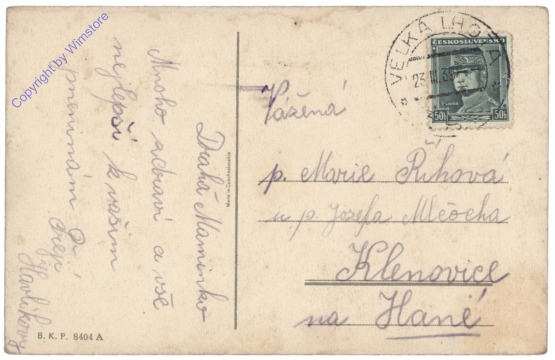 Copyright by Wimstore
Drahá Maminko
Mnoho zdraví a vše
nejlepší k vašim
jmeninám Vá
přejí
Havlíkovy
B. K. P. 8404 A
Made in Czechoslovakia
VELKÁ LHOTA
23 III 38
ČESKOSLOVENSKO
50h 50h
Vážená
p. Marie Řihová
u p. Jozefa Mlčocha
Klenovice
na Hané